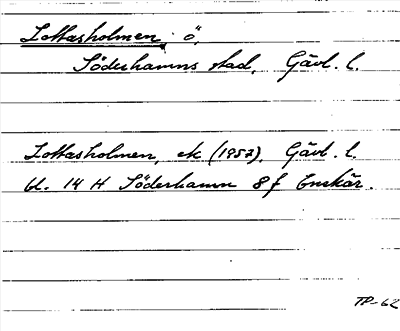 Lottasholmen, ö,
Söderhamns stad, Gävl. l.
Lottasholmen, ek (1952), Gävl. l.
bl. 14 H Söderhamn 8 f Enskär.
TP-62